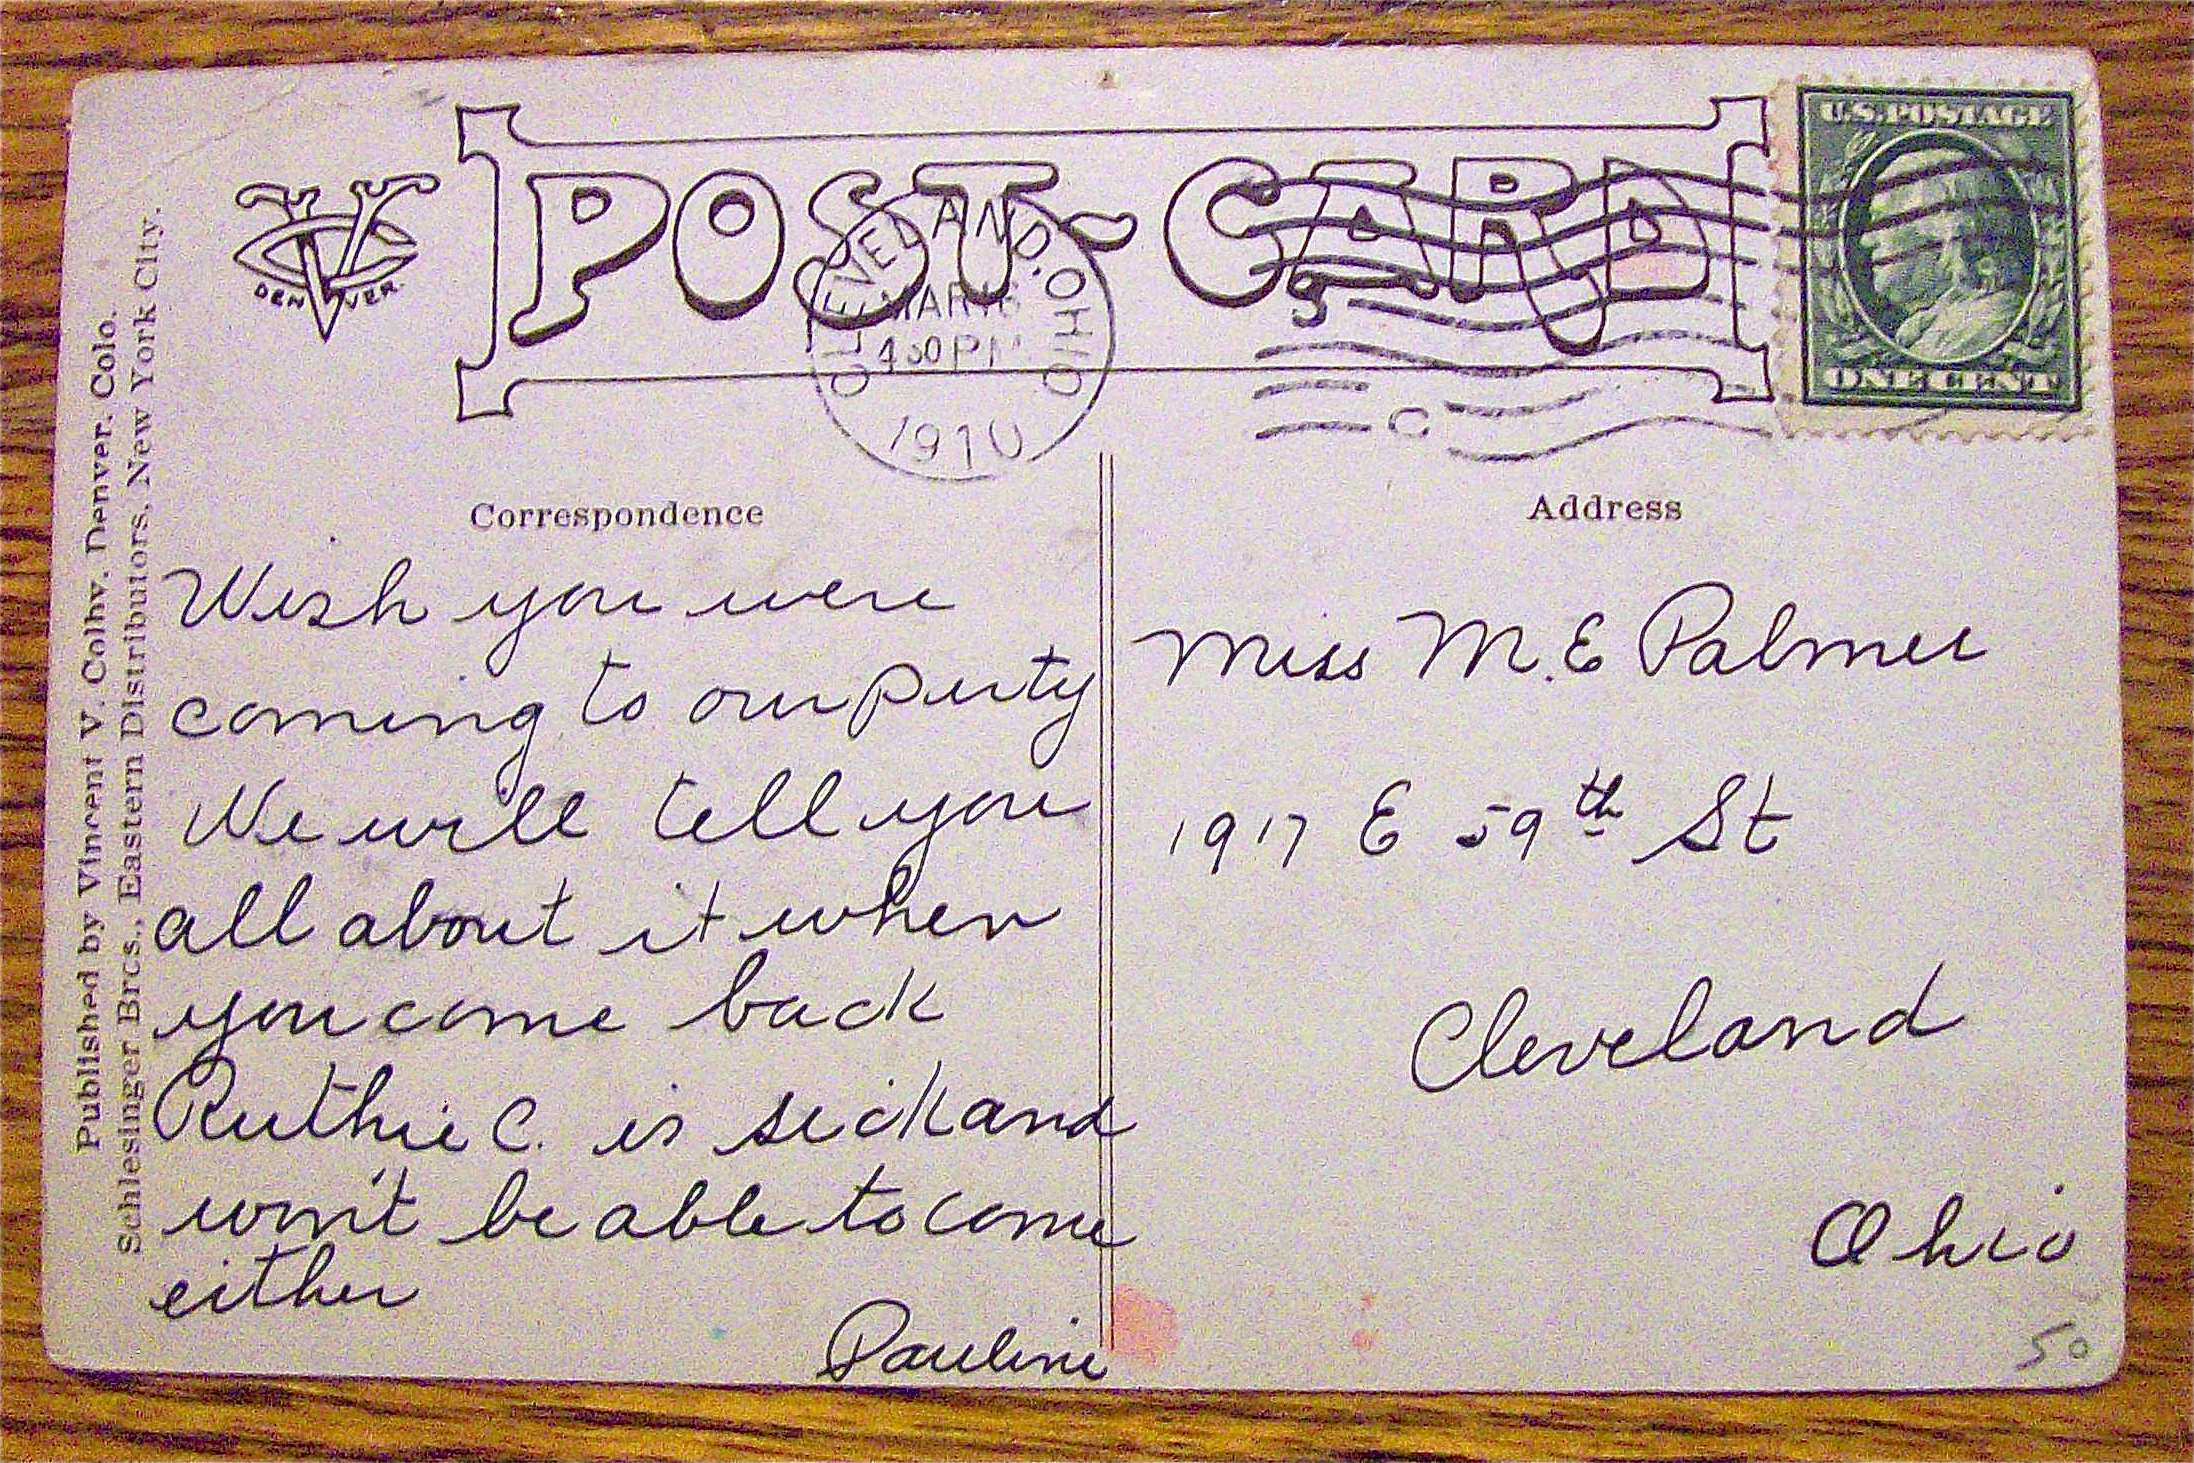 POST-CARD
U.S. POSTAGE
ONE CENT
DENVER
CLEVELAND, OHIO
MAR 16
4 30 PM
1910
C
Correspondence
Wish you were
coming to our party
We will tell you
all about it when
you come back
Ruthie C. is sick and
won't be able to come
either
Pauline
Address
Miss M. E Palmer
1917 E 59th St
Cleveland
Ohio
50
Published by Vincent V. Colby, Denver, Colo.
Schlesinger Bros., Eastern Distributors, New York City.